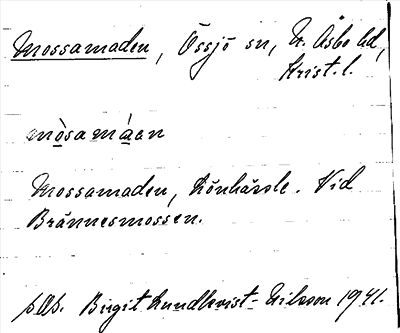 Mossamaden, Össjö sn, N. Åsbo hd,
Krist. l.
mòsamáan
Mossamaden, Lönhässle. Vid
Brännesmossen.
Birgit Lundkvist-Nilsson 1941.